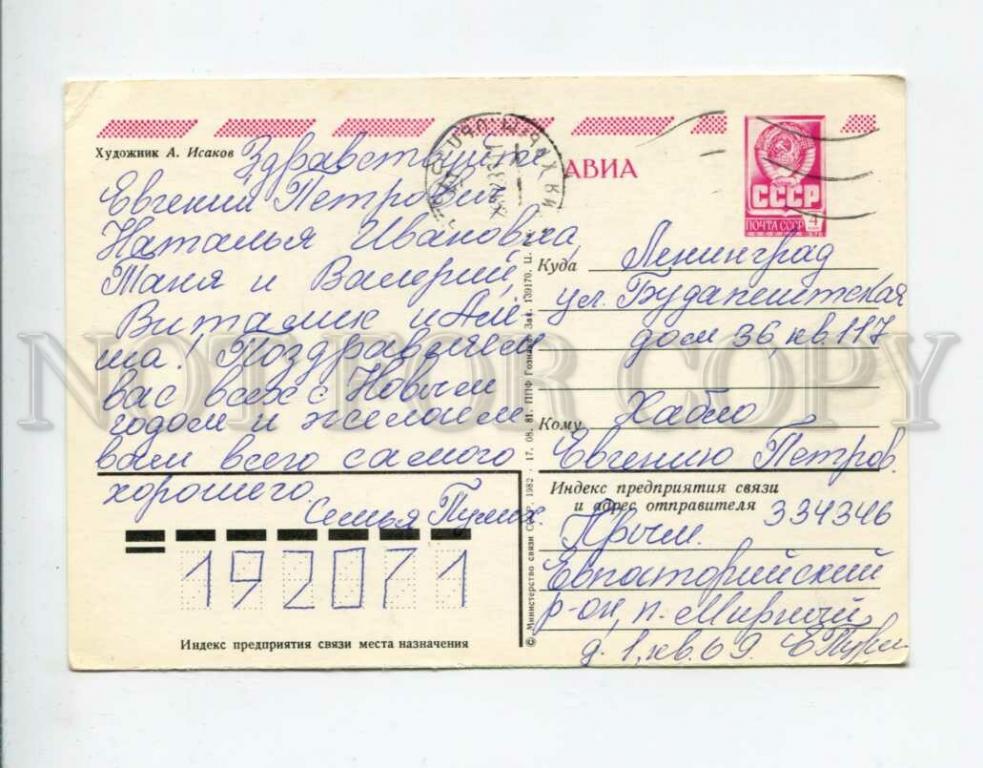 Художник А. Исаков
Здравствуйте
Евгений Петрович
Наталья Ивановна,
Таня и Валерий,
Виталик и Алё-
ша! Поздравляем
вас всех с Новым
годом и желаем
вам всего самого
хорошего.
Семья
АВИА
СССР
ПОЧТА СССР
4
Куда Ленинград
ул. Будапештская
дом 36, кв. 117
Кому
Евгению Петров.
Индекс предприятия связи
и адрес отправителя 334346
Крым.
Евпаторийский
р-он, п. Мирный
д. 1, кв. 69.
192071
Индекс предприятия связи места назначения
© Министерство связи СССР, 1982 · 17. 08. 81. ППФ Гознака. Зак. 139170. Ц. 
NOT FOR COPY